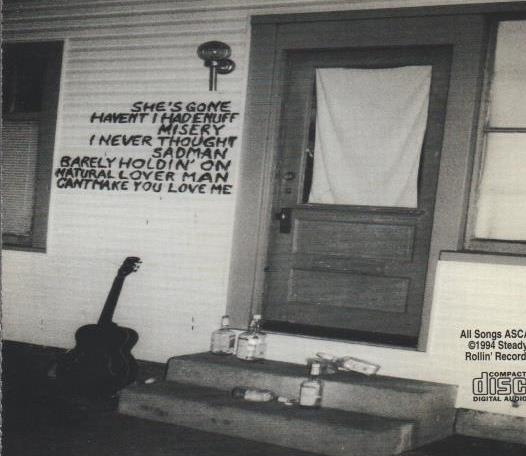 SHE'S GONE
HAVENT I HAD ENUFF
MISERY
I NEVER THOUGHT
SADMAN
BARELY HOLDIN' ON
NATURAL LOVER MAN
CANT MAKE YOU LOVE ME
All Songs ASCA
©1994 Steady
Rollin' Record
COMPACT
disc
DIGITAL AUDIO